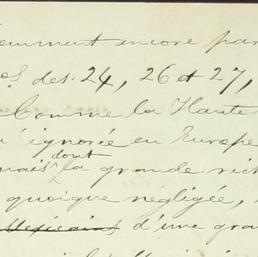 encore par
des 24, 26 et 27,
Comme la Haute
ignorée en Europe
dont
la grande
quoique négligée,
Mexicains d'une gra